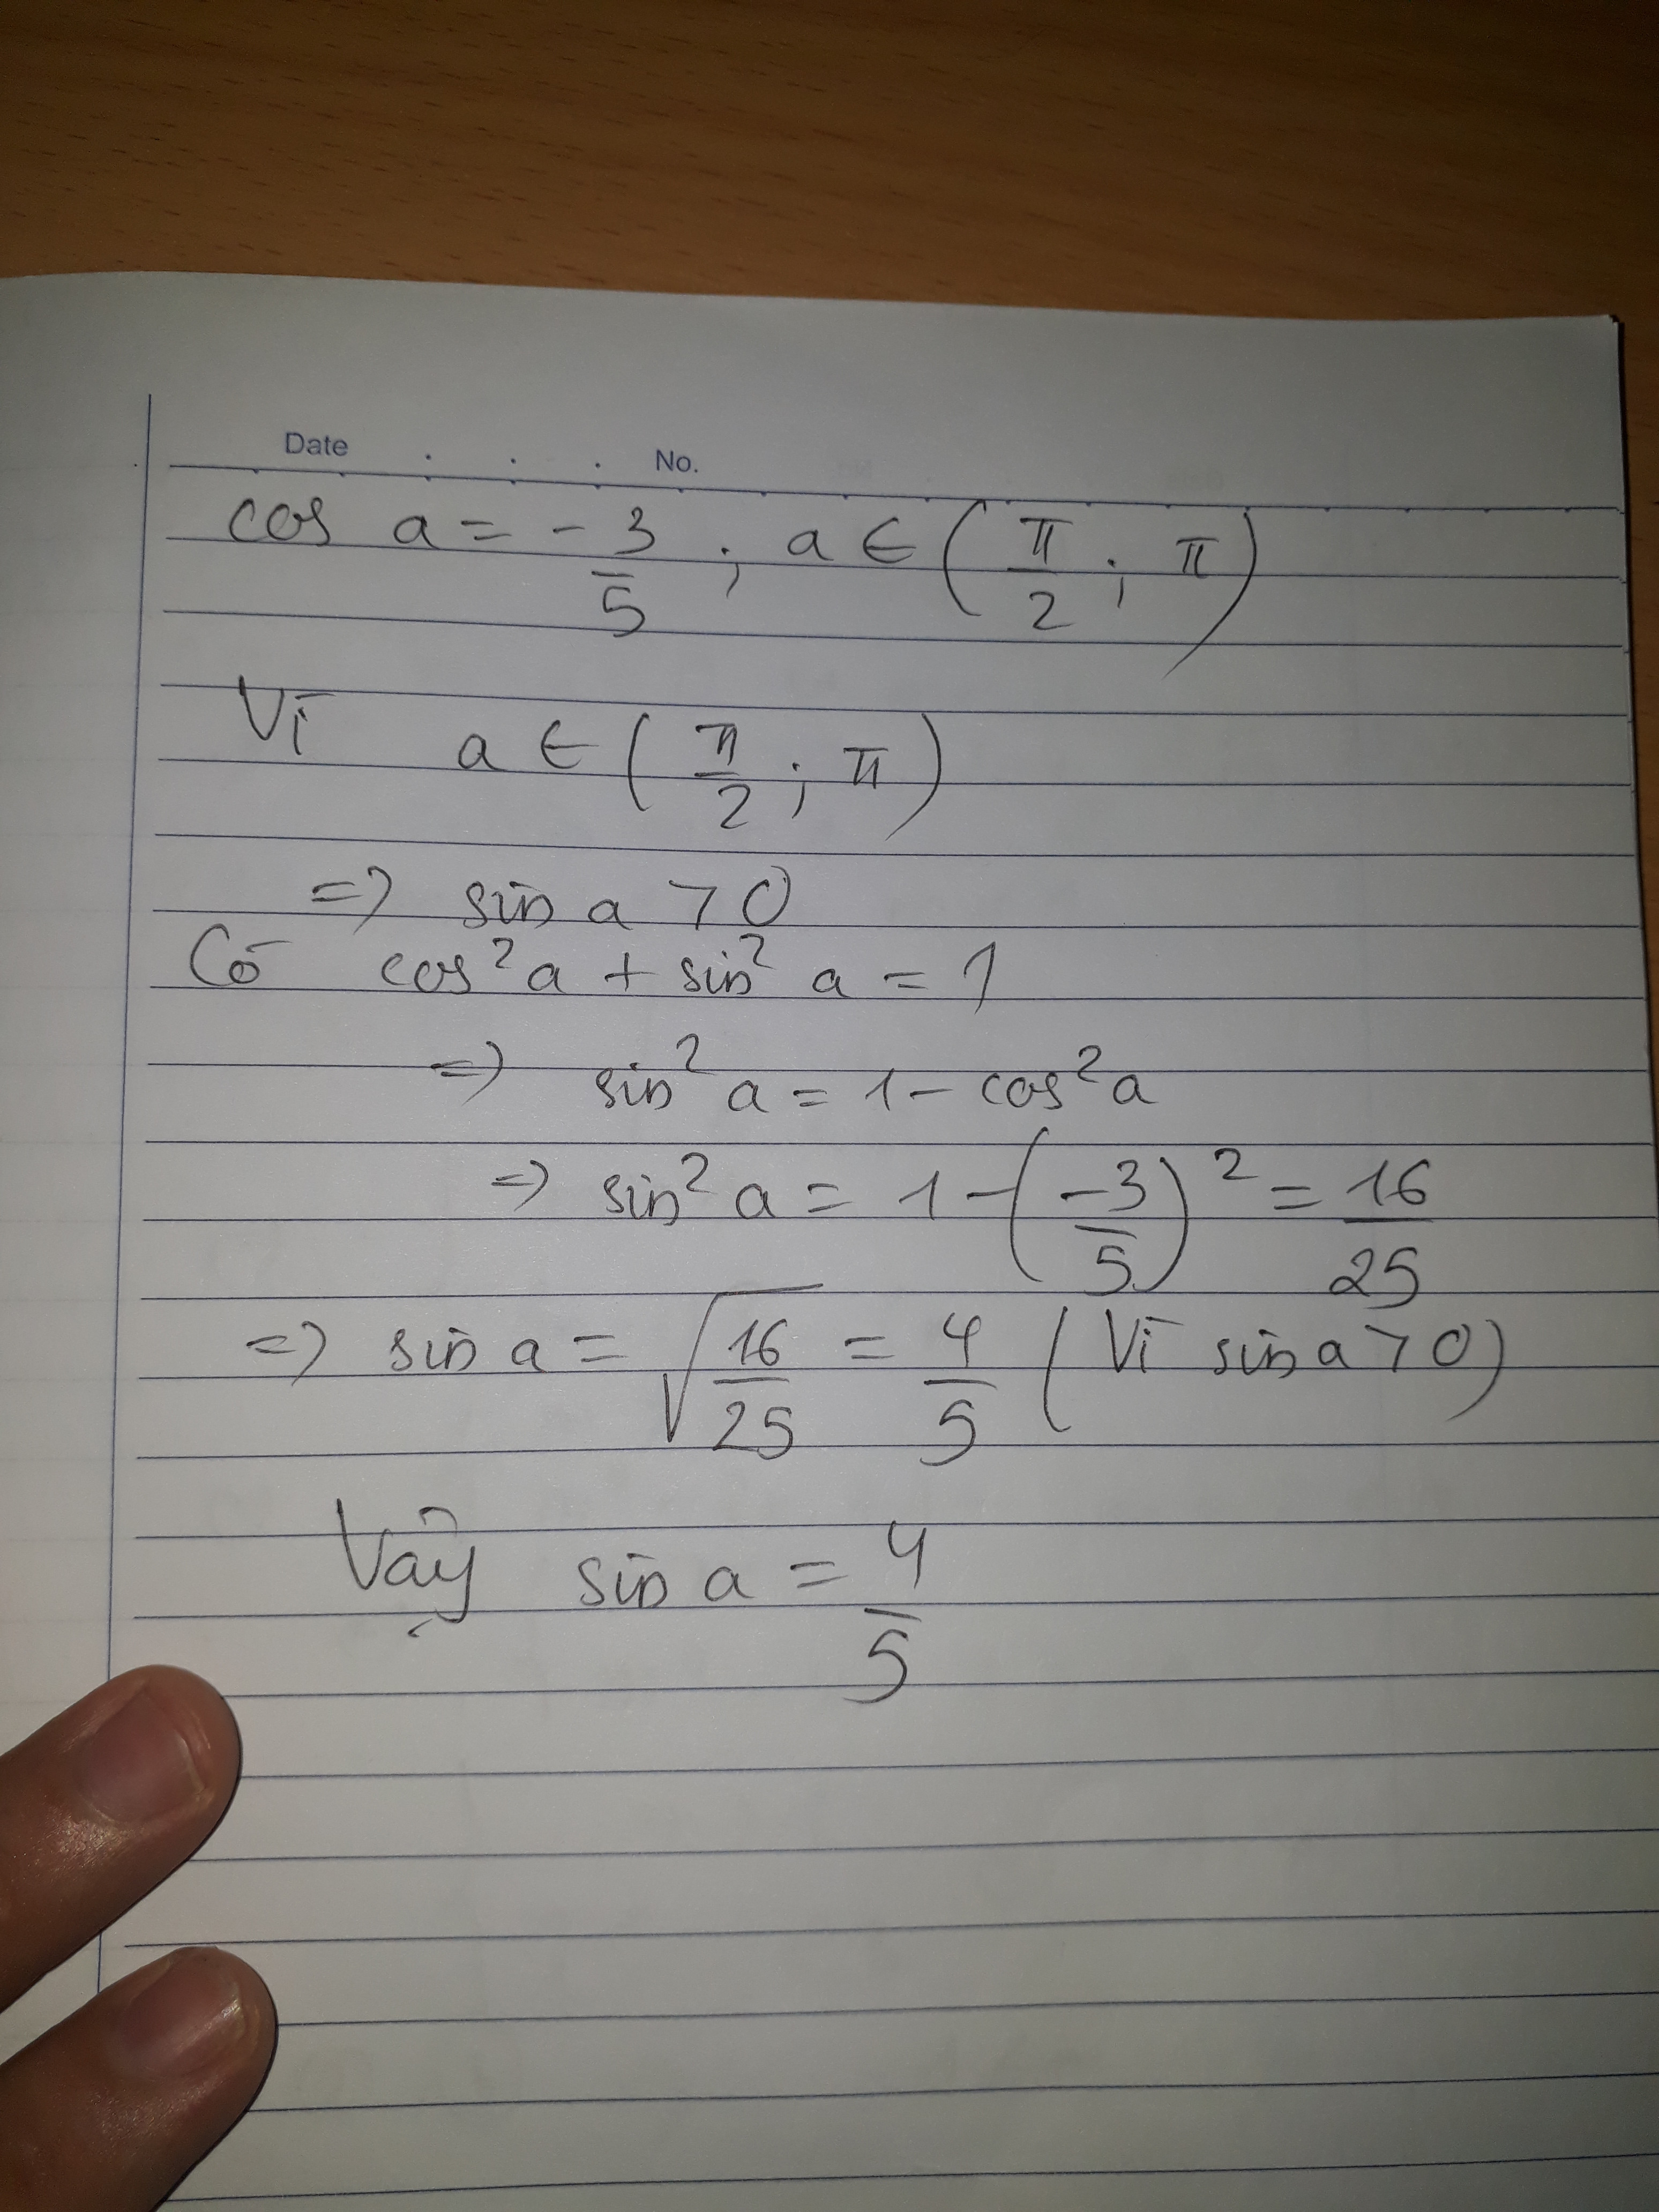 Date . . . No.
cos a = -3/5 ; a ∈ (π/2 ; π)
Vì a ∈ (π/2 ; π)
=> sin a > 0
Có cos²a + sin² a = 1
=> sin² a = 1 - cos²a
=> sin² a = 1 - (-3/5)² = 16/25
=> sin a = √(16/25) = 4/5 (Vì sin a > 0)
Vậy sin a = 4/5